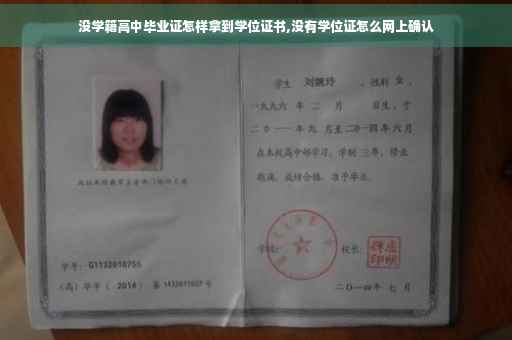 没学籍高中毕业证怎样拿到学位证书,没有学位证怎么网上确认
学生 刘婉玲 ,性别 女 ,
一九九六 年 二 月 日生,于
二0一一 年 九 月至 二0一四 年 六 月
在本校高中部学习,学制 三 年,修业
期满,成绩合格,准予毕业。
学号: G1132010755
(高)毕字( 2014 )第 1432011027 号
学校: 校长:
二〇一四年 七 月